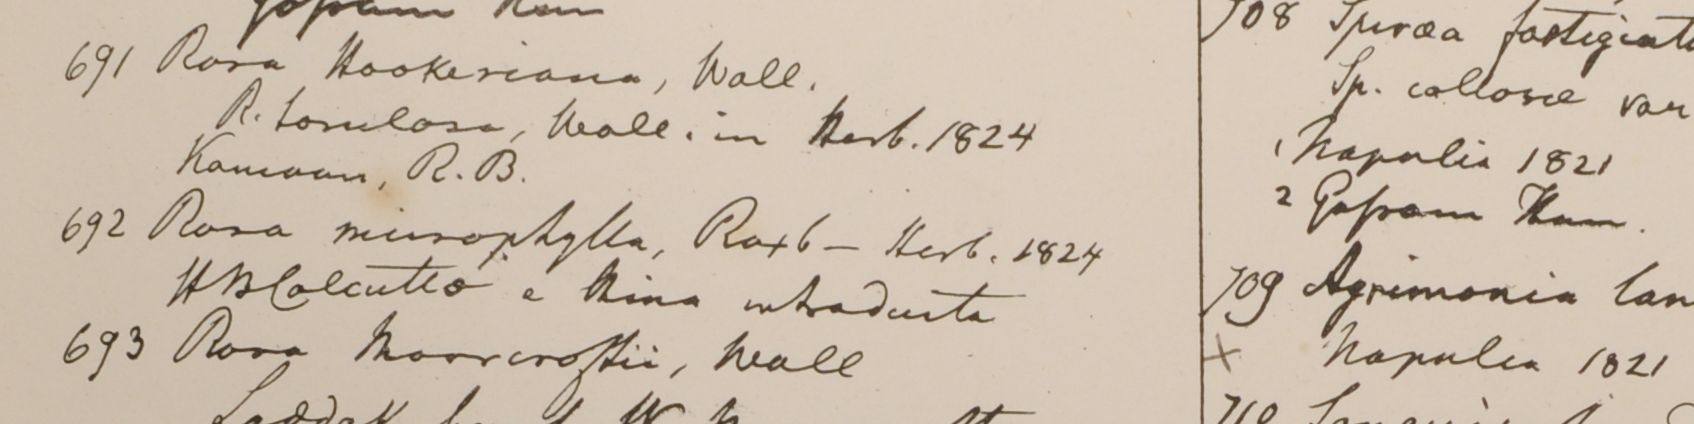 691 Rosa Hookeriana, Wall.
R. torulosa, Wall. in Herb. 1824
Kamaon, R. B.
692 Rosa microphylla, Roxb – Herb. 1824
HBCalcutta e China introducta
693 Rosa Moorcroftii, Wall
708 Spiræa fastigiata
Sp. callosæ var
1 Napalia 1821
2 Gossam Than.
709 Agrimonia lan
x Napalia 1821
710